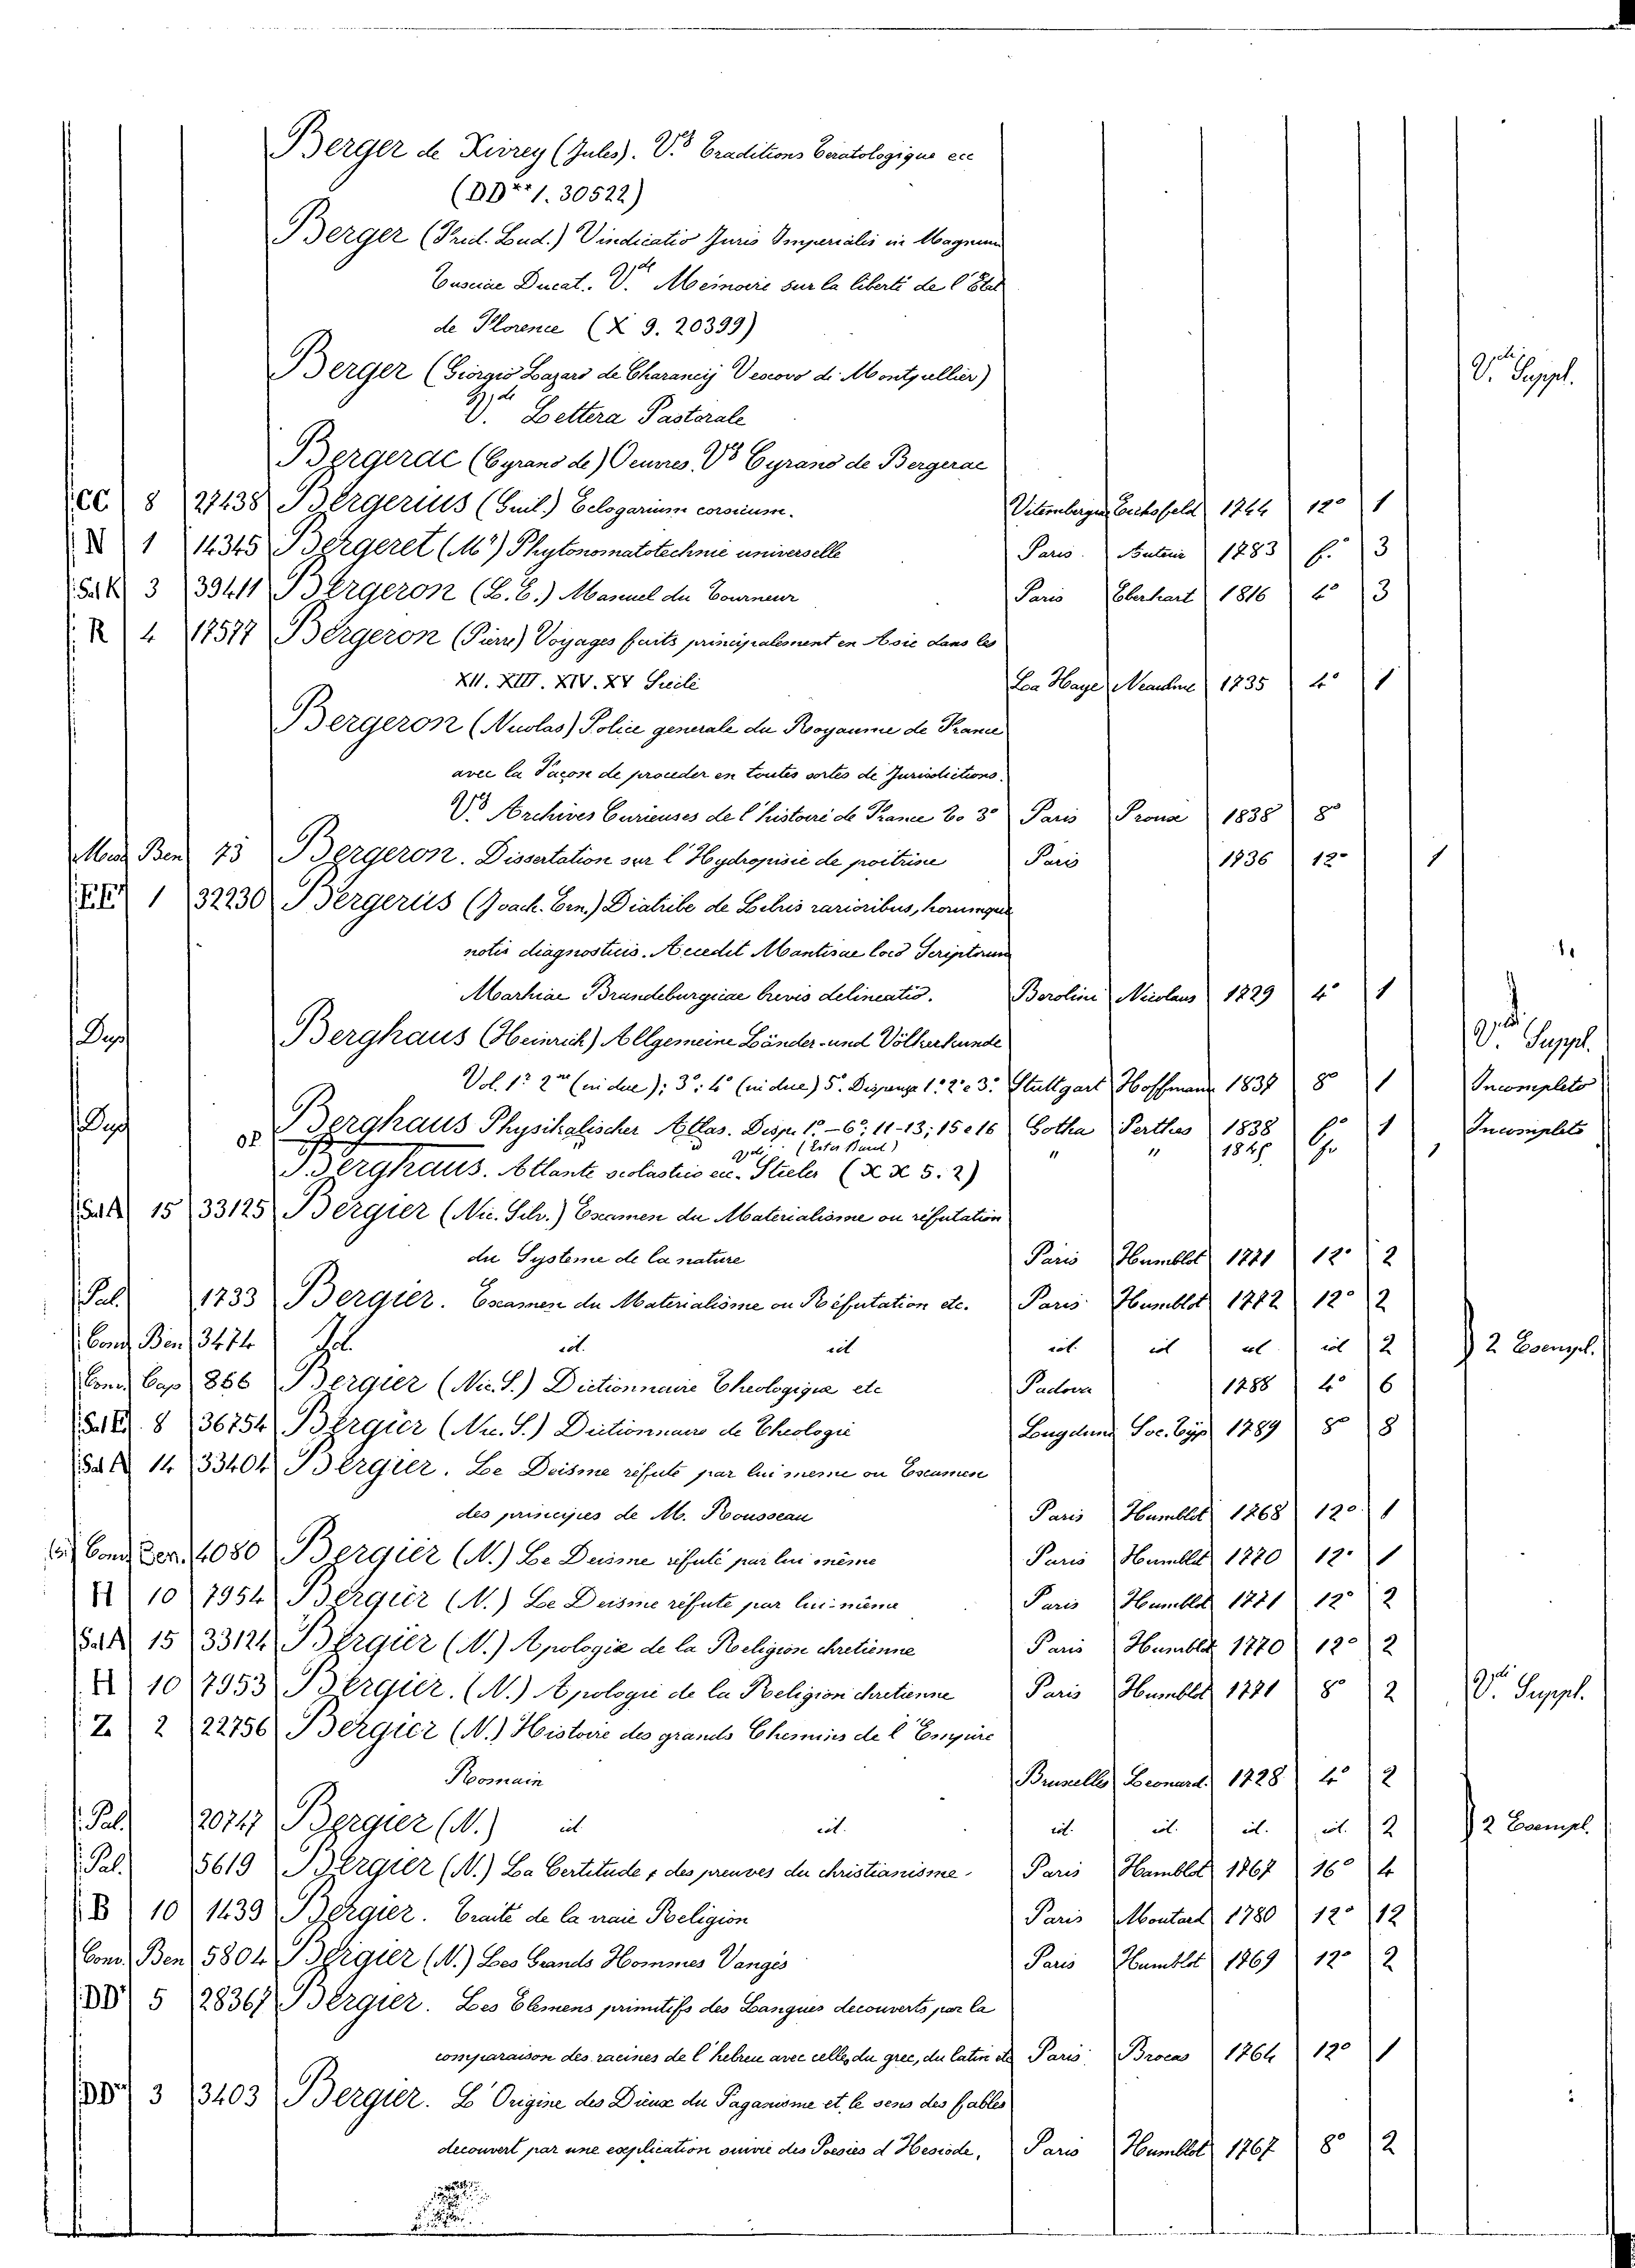 Berger de Xivrey (Jules). V.e Traditions Teratologique ecc
(DD** 1. 30522)
Berger (Fred. Lud.) Vindicatio Juris Imperialis in Magnum
Ducat. V.de Memoire sur la liberté de l'Etat
de Florence (X 9. 20399)
Berger (Giorgio Lazaro de Charancij Vescovo di Montpellier) V.di Suppl.
V.de Lettera Pastorale
Bergerac (Cyrano de) Oeuvres. V.e Cyrano de Bergerac
CC 8 27438 Bergerius (Guil.) Eclogarium 12° 1
N 1 14345 Bergeret (Mr) Phytonomatotechnie universelle Paris. 1783 f.° 3
Sal K 3 39411 Bergeron (L. E.) Manuel du Tourneur Paris 1816 4° 3
R 4 17577 Bergeron (Pierre) Voyages faits principalement en Asie dans les
XII. XIII. XIV. XV Siecle La Haye Neaulme 1735 4° 1
Bergeron (Nicolas) Police generale du Royaume de France
avec la Façon de proceder en toutes sortes de Jurisdictions.
V.e Archives Curieuses de l'histoire de France To 3° Paris 1838 8°
Ben 73 Bergeron. Dissertation sur l'Hydropisie de poitrine Paris 1736 12° 1
1 32230 Bergerus (Joach. Ern.) Diatribe de Libris rarioribus, horumque
notis diagnosticis. Accedit Mantisae loco Scriptorum
Marhiae Brandeburgicae brevis delineatio. Berolini Nicolaus 1729 4° 1
Dep Berghaus (Heinrich) Allgemeine Länder-und Völkerkunde V.di Suppl.
Vol. 1° 2° (in due); 3°: 4° (in due) 5°. Dispensa 1.° 2° e 3.° Stuttgart Hoffmann 1837 8° 1 Incompleto
Dep op Berghaus Physikalischer Atlas. Disp. 1.° -6°; 11-13; 15 e 16 Gotha Perthes 1838 1 Incompleto
(Erster Band) " " 1845
Berghaus. Atlante scolastico ecc. V.di Stieler (XX 5. 2)
Sal A 15 33125 Bergier (Nic. Silv.) Examen du Materialisme ou réfutation
du Systeme de la nature Paris Humblot 1771 12° 2
Pal. 1733 Bergier. Examen du Materialisme ou Réfutation etc. Paris Humblot 1772 12° 2
Conv. Ben 3474 Id. id. id id. id id id 2 2 Esempl.
Conv. Cap 866 Bergier (Nic. S.) Dictionnaire Theologique etc Padova 1788 4° 6
8 36754 Bergier (Nic. S.) Dictionnaire de Theologie Lugduni Soc. Typ 1789 8° 8
Sal A 14 33404 Bergier. Le Deisme réfuté par lui meme ou Examen
des principes de M. Rousseau Paris Humblot 1768 12° 1
Conv. Ben. 4080 Bergier (N.) Le Deisme réfuté par lui même Paris Humblot 1770 12° 1
H 10 7954 Bergier (N.) Le Deisme réfuté par lui même Paris Humblot 1771 12° 2
Sal A 15 33124 Bergier (N.) Apologie de la Religion chretienne Paris Humblot 1770 12° 2
H 10 7953 Bergier. (N.) Apologie de la Religion chretienne Paris Humblot 1771 8° 2 V.di Suppl.
Z 2 22756 Bergier (N.) Histoire des grands Chemins de l'Empire
Romain Bruxelles Leonard. 1728 4° 2
Pal. 20747 Bergier (N.) id id. id. id. id. id. 2 2 Esempl.
Pal. 5619 Bergier (N.) La Certitude des preuves du christianisme Paris Humblot 1767 16° 4
B 10 1439 Bergier. Traité de la vraie Religion Paris Moutard 1780 12° 12
Conv. Ben 5804 Bergier (N.) Les Grands Hommes Vangés Paris Humblot 1769 12° 2
DD 5 28367 Bergier. Les Elemens primitifs des Langues decouverts par la
comparaison des racines de l'hebreu avec celles du grec, du latin etc Paris Brocas 1764 12° 1
DD 3 3403 Bergier. L'Origine des Dieux du Paganisme et le sens des fables
decouvert par une explication suivie des Poesies d'Hesiode, Paris Humblot 1767 8° 2